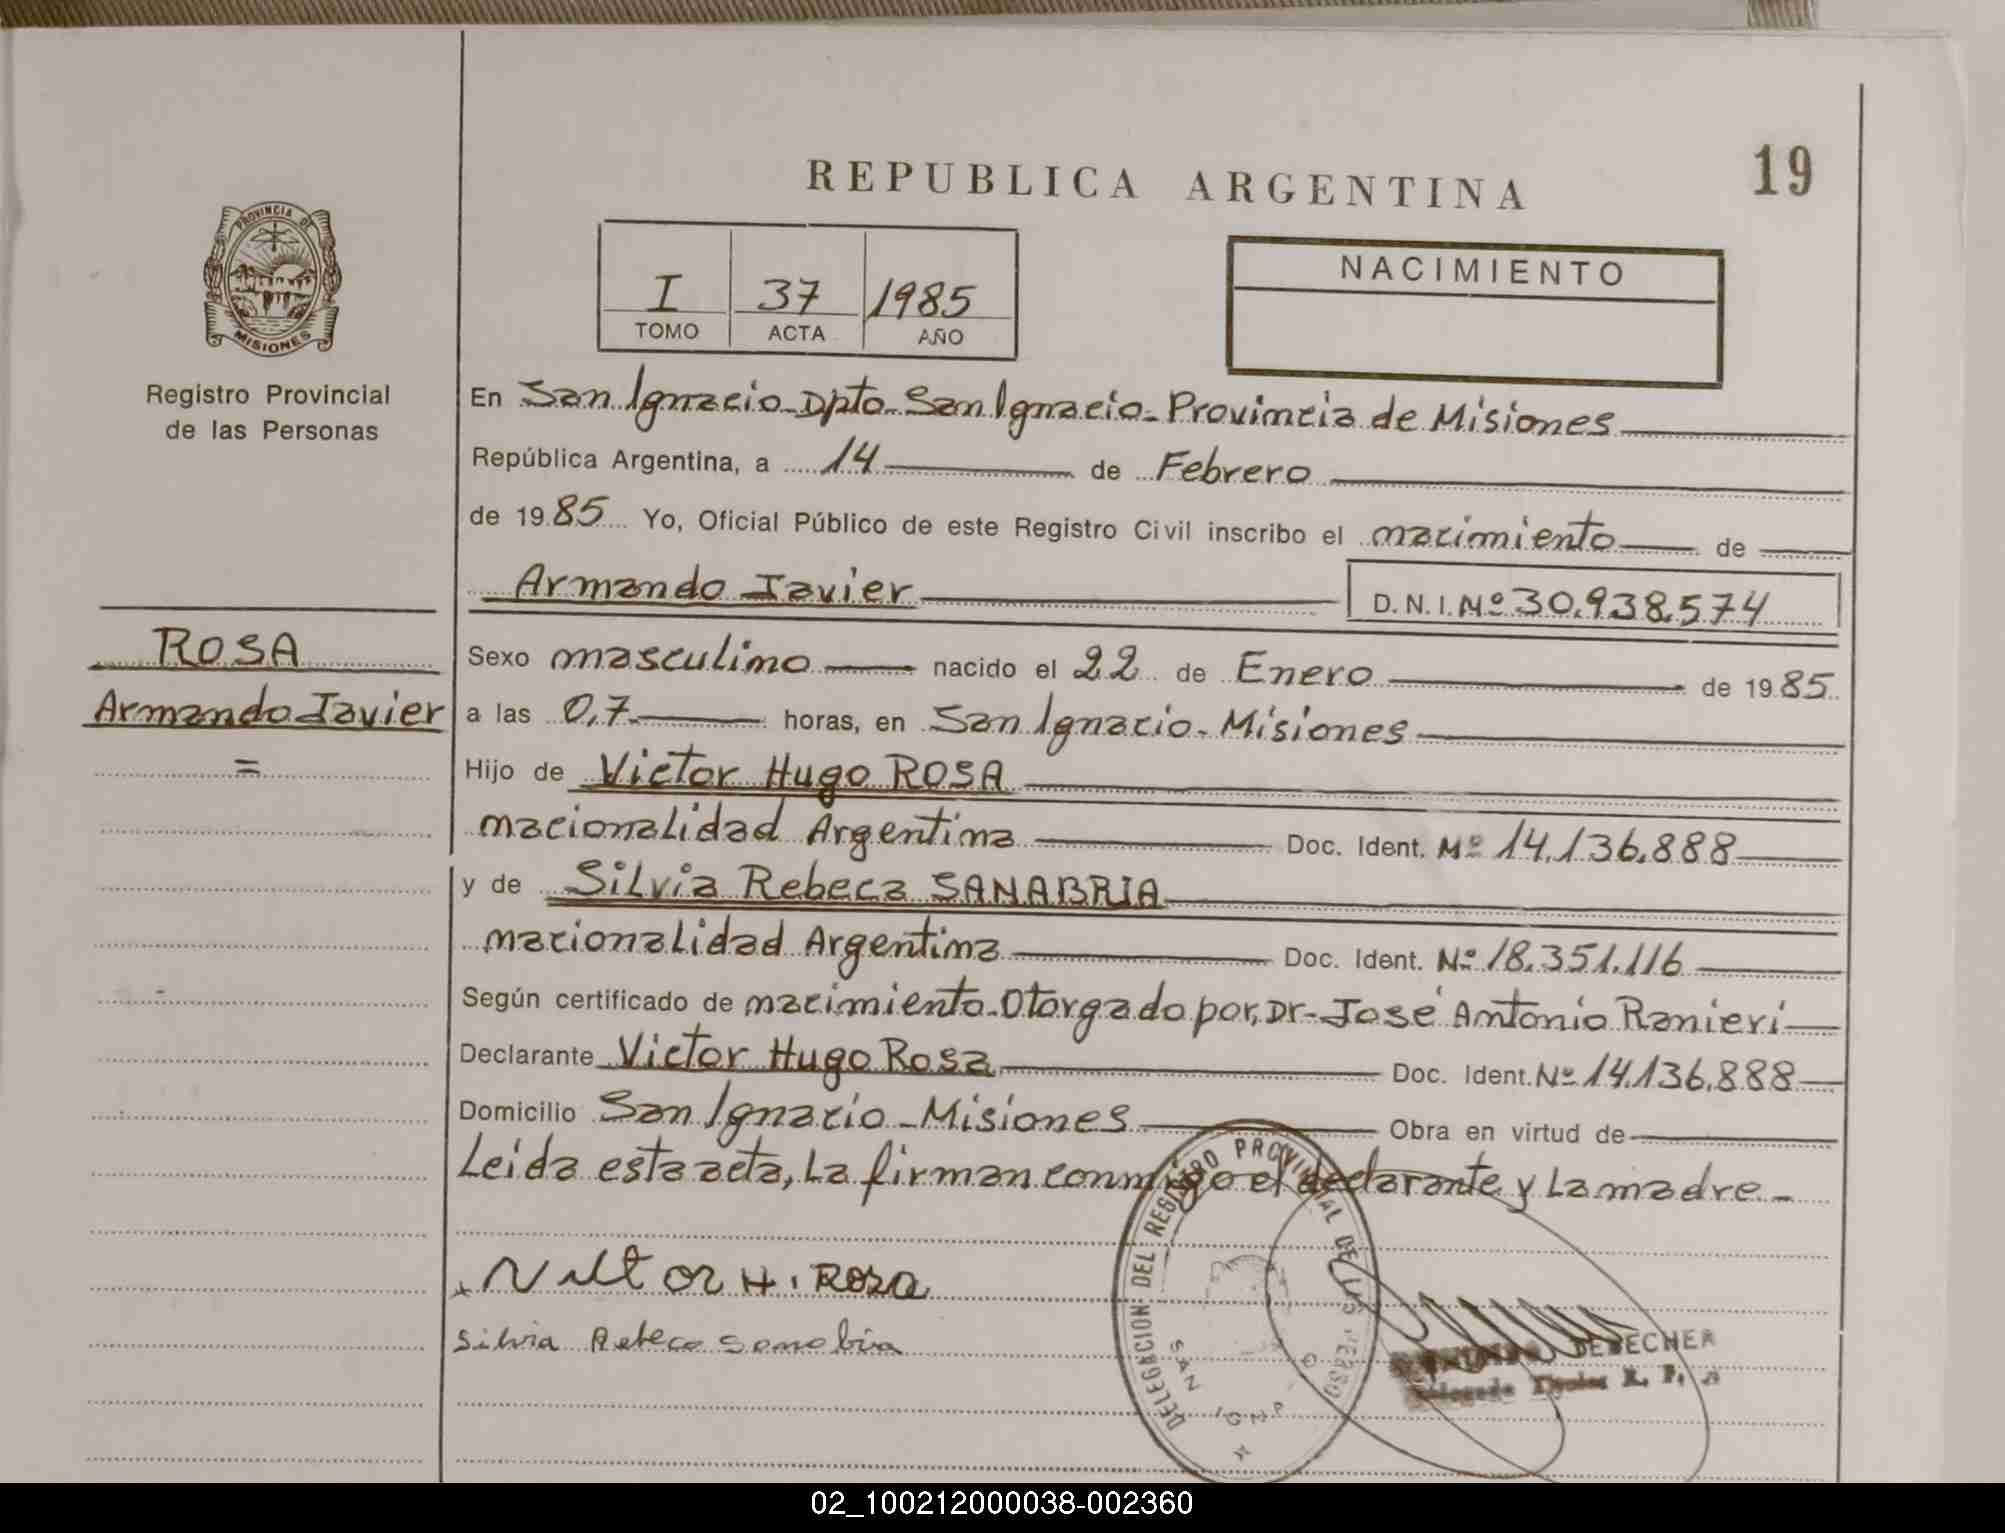 REPUBLICA ARGENTINA
19
PROVINCIA DE
MISIONES
Registro Provincial
de las Personas
I 37 1985
TOMO ACTA AÑO
NACIMIENTO
En San Ignacio-Dpto-San Ignacio-Provincia de Misiones
República Argentina, a 14 de Febrero
de 1985 Yo, Oficial Público de este Registro Civil inscribo el nacimiento de
Armando Javier D.N.I. Nº 30.938.574
ROSA
Armando Javier
=
Sexo masculino nacido el 22 de Enero de 1985
a las 0,7 horas, en San Ignacio-Misiones
Hijo de Victor Hugo ROSA
nacionalidad Argentina Doc. Ident. Nº 14.136.888
y de Silvia Rebeca SANABRIA
nacionalidad Argentina Doc. Ident. Nº 18.351.116
Según certificado de nacimiento-Otorgado por, Dr-José Antonio Ranieri
Declarante Victor Hugo Rosa Doc. Ident. Nº 14.136.888
Domicilio San Ignacio-Misiones Obra en virtud de
Leida esta acta, La firman conmigo el declarante y La madre-
Victor H. Rosa
Silvia Rebeca Sanabria
DELEGACION DEL REGISTRO PROVINCIAL DE LAS PERSO
SAN IGNA
BECHER
Delegado Titular R. P.
02_100212000038-002360